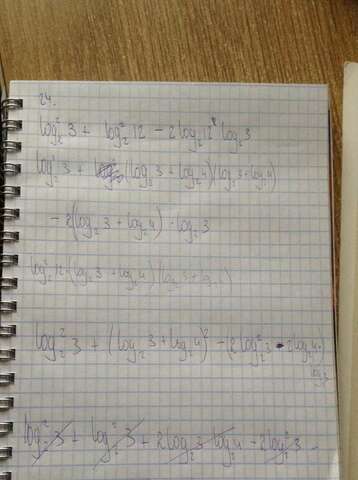 24.
log₂² 3 + log₂² 12 - 2log₂ 12 · log₂ 3
log₂² 3 + (log₂ 3 + log₂ 4)(log₂ 3 + log₂ 4)
- 2(log₂ 3 + log₂ 4) · log₂ 3
log₂² 12 = (log₂ 3 + log₂ 4)
log₂² 3 + (log₂ 3 + log₂ 4)² - (2log₂² 3
log₂² 3 + log₂² 3 + 2log₂ 3 log₂ 4 - 2log₂² 3